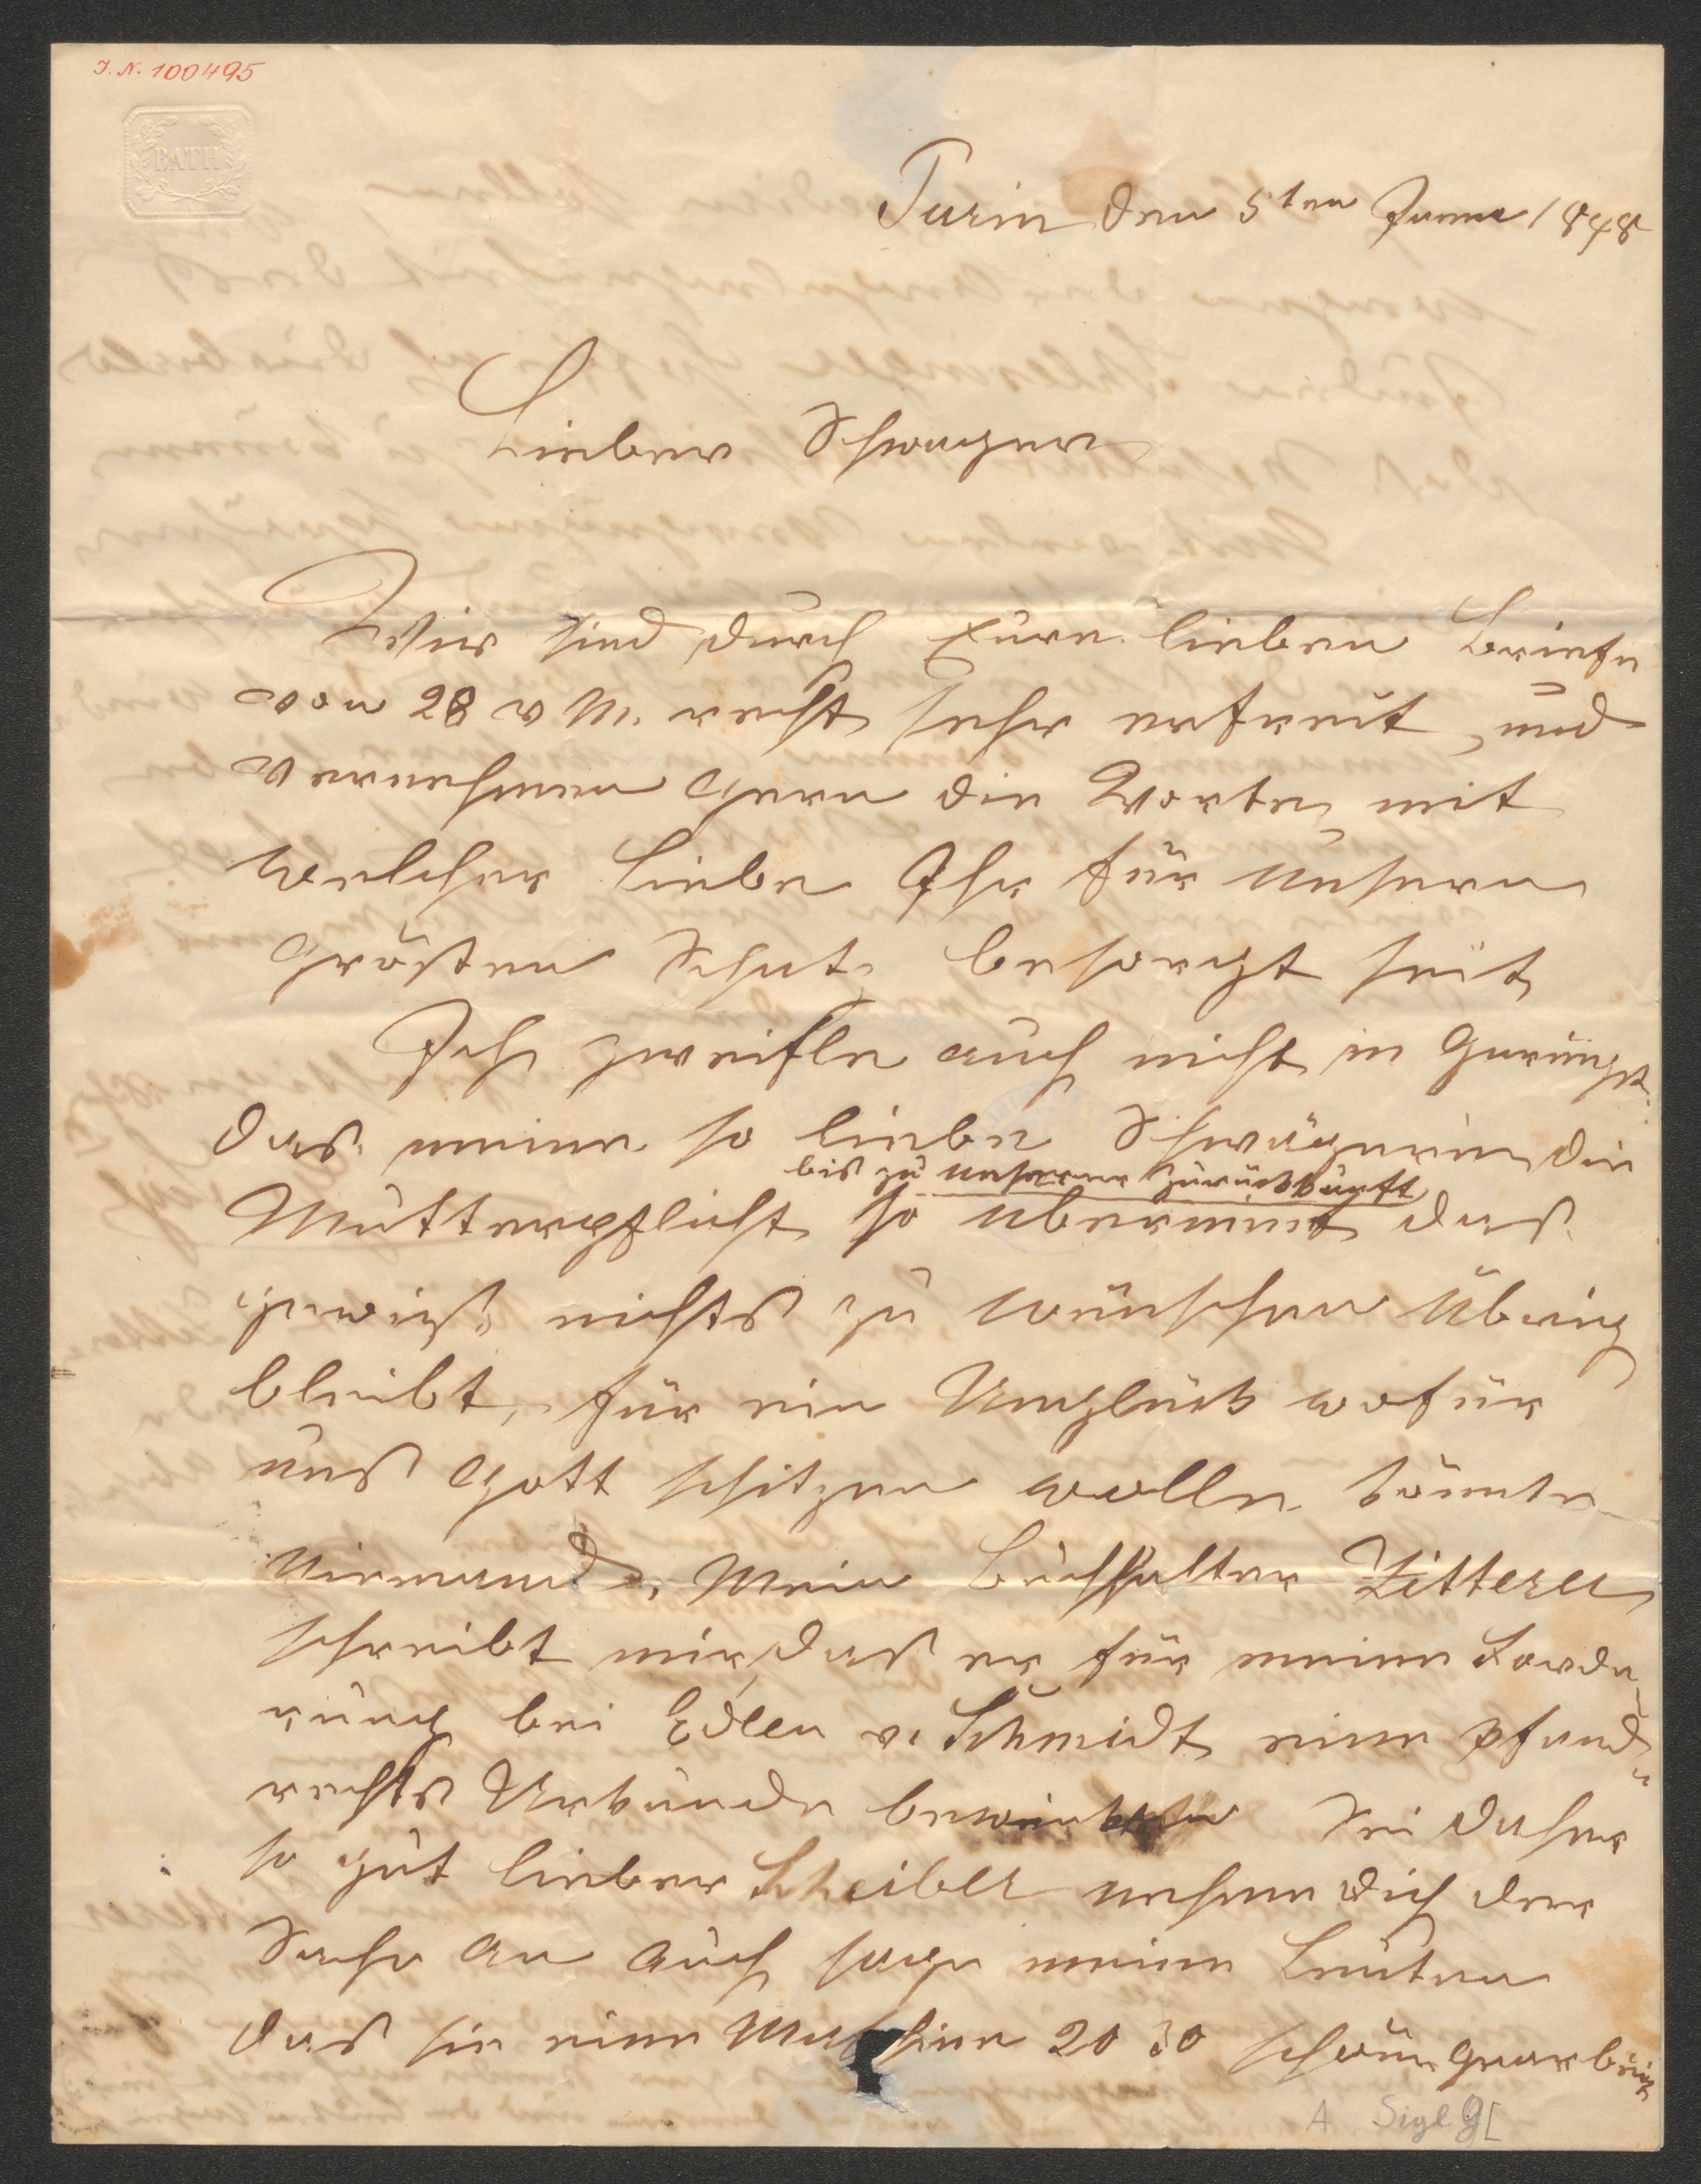 J. N. 100495
BATH
Turin den 5ten Junni 1848
Lieber Schwager
Wir sind durch Eure lieben Briefe
von 28 v M. recht sehr erfreut, und
vernehmen gern die Worte mit
welcher Liebe Ihr für unsern
grösten Schatz besorgt seit
Ich zweifle auch nicht in
das meine so liebe Schwägerin die
bis zu unserer zurückkunft
Mutterpflicht so übernimt das
gewiß nichts zu wünschen übrig
bleibt, für ein Unglück wofür
uns Gott schitzen wolle könnte
Niemand. Mein Buchhalter Zitterer
schreibt mir, das er für meine Forde
rung bei Edlen v. Schmidt eine Pfand
rechts Urkunde Sei daher
so gut lieber Scheibler nehme dich der
Sache an auch sage meine Leuten
das sie eine Maschine 20 30 schön
A Sigl G[